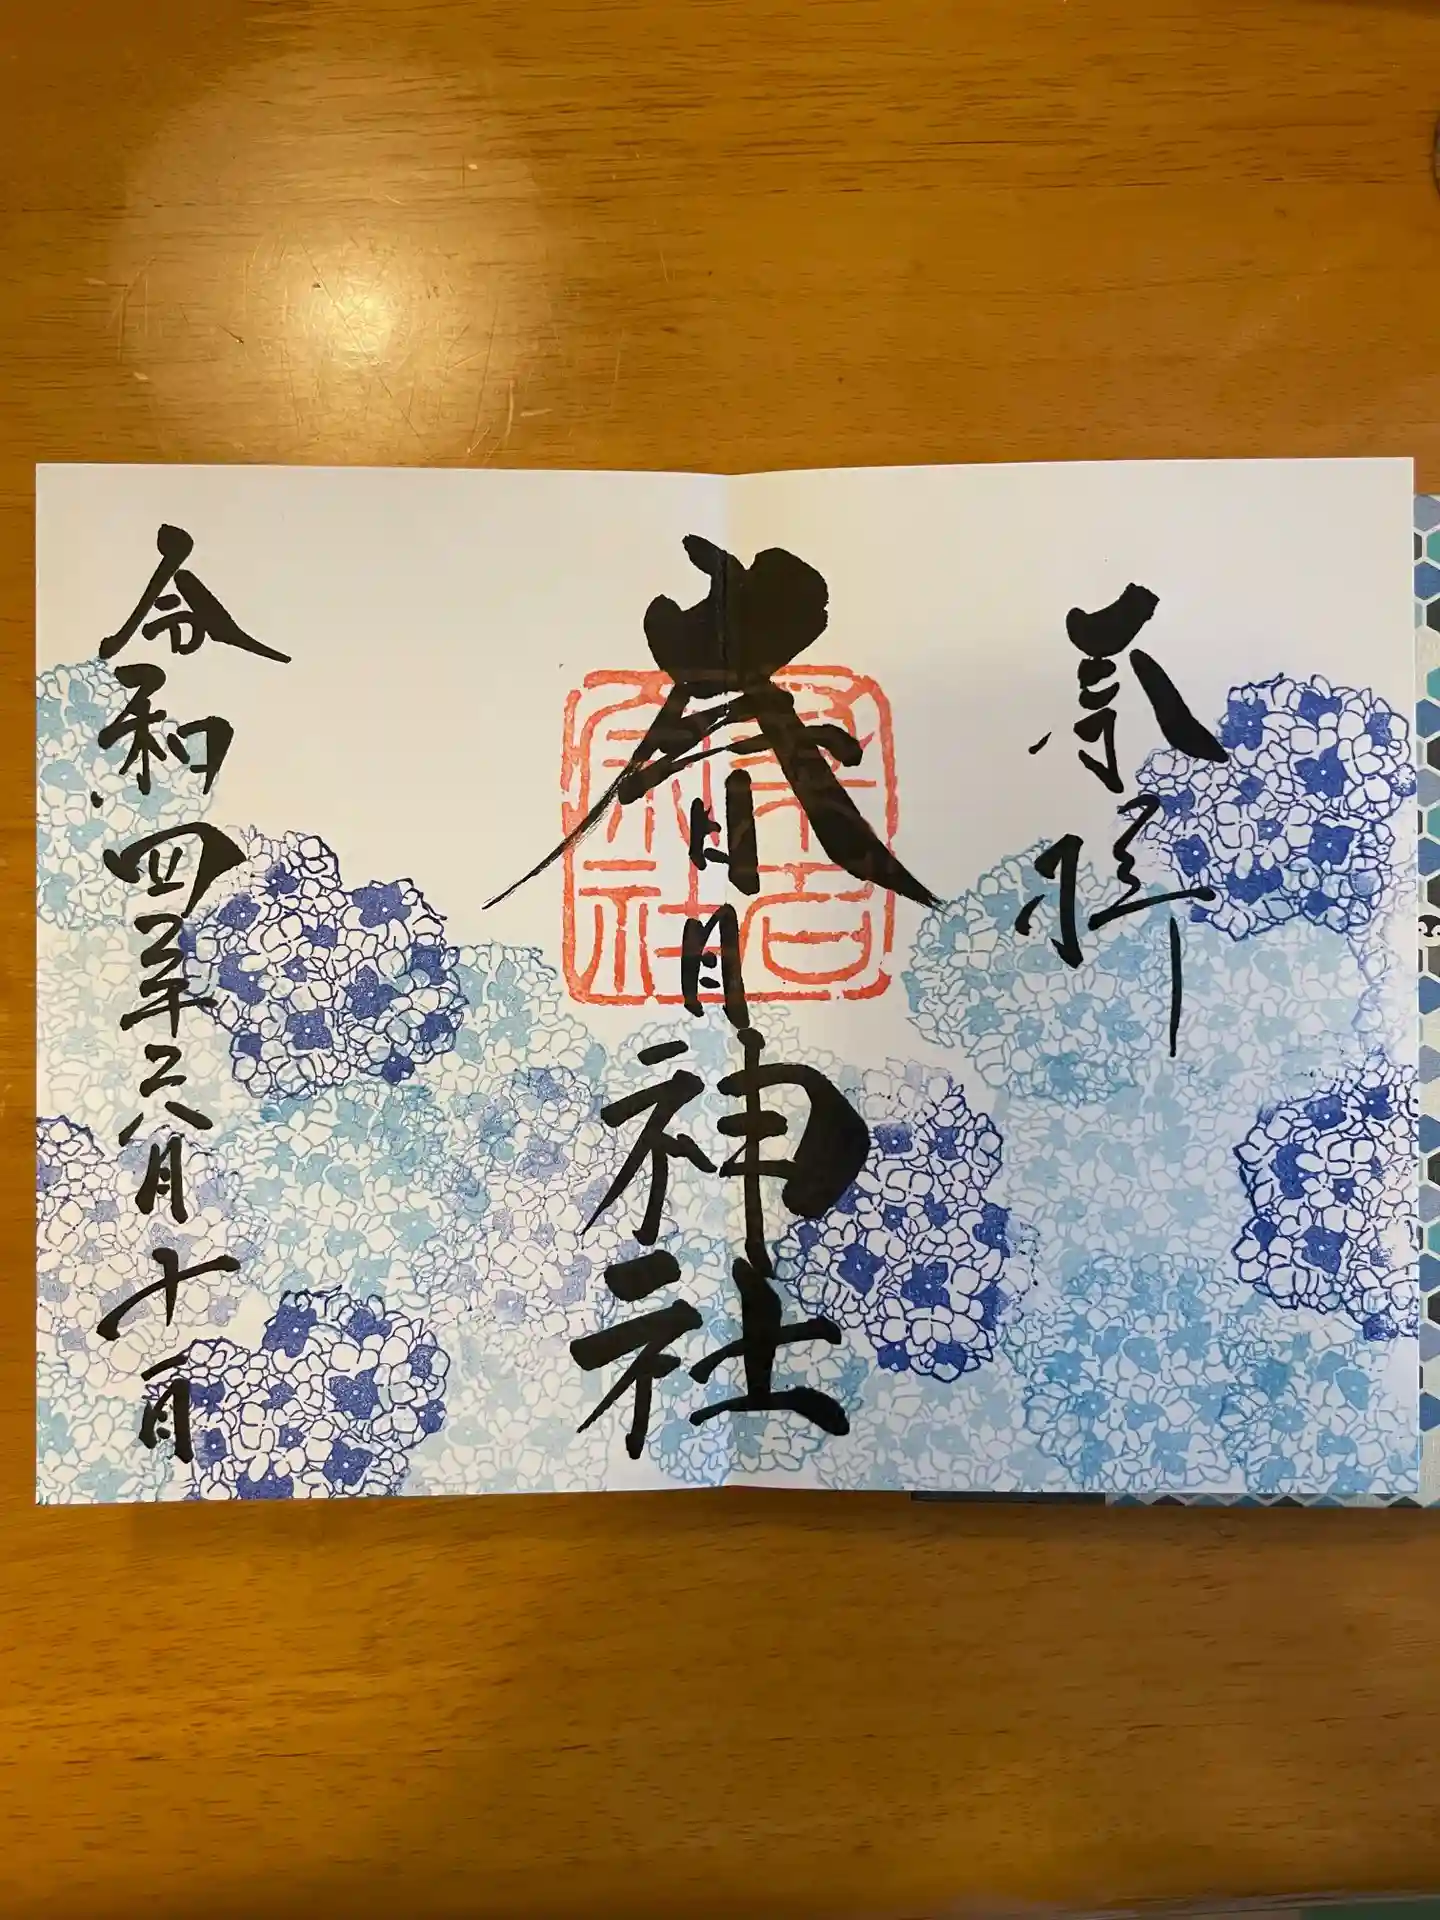 奉拝
春日神社
令和四年六月十一日